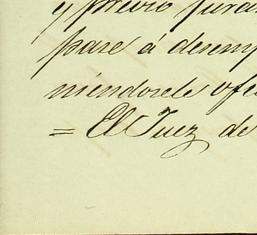 y previo jura
pase á desemp
niéndosele ofi
= El Juez de